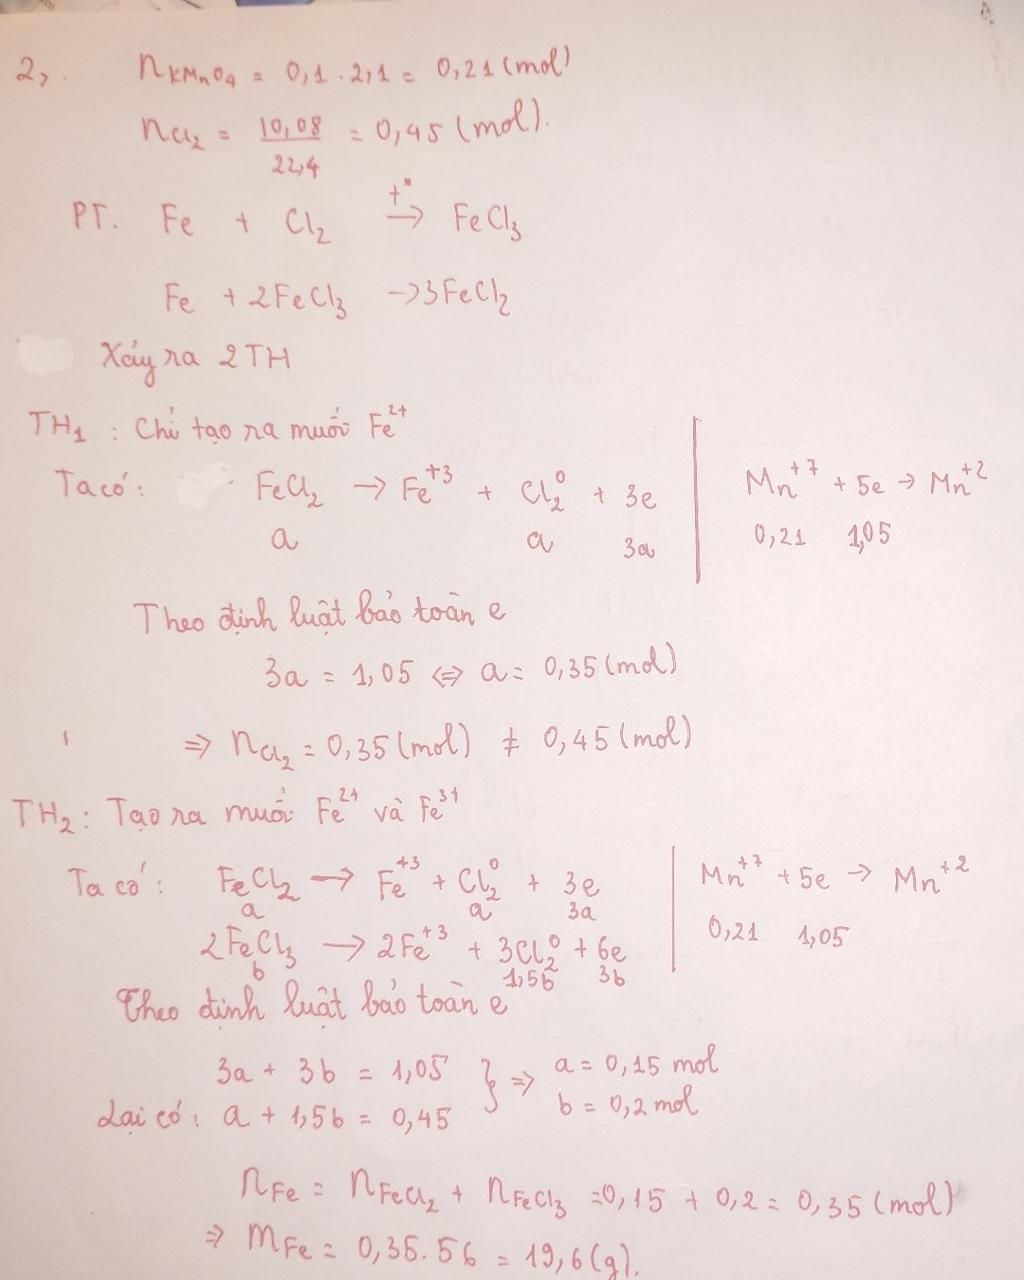 2, nKMnO4 = 0,1 . 2,1 = 0,21 (mol)
nCl2 = 10,08/22,4 = 0,45 (mol).
PT. Fe + Cl2 –t°→ FeCl3
Fe + 2FeCl3 → 3FeCl2
Xảy ra 2 TH
TH1 : Chỉ tạo ra muối Fe²⁺
Ta có : FeCl2 → Fe⁺³ + Cl2⁰ + 3e | Mn⁺⁷ + 5e → Mn⁺²
a a 3a | 0,21 1,05
Theo định luật bảo toàn e
3a = 1,05 ⇔ a = 0,35 (mol)
⇒ nCl2 = 0,35 (mol) ≠ 0,45 (mol)
TH2 : Tạo ra muối Fe²⁺ và Fe³⁺
Ta có : FeCl2 → Fe⁺³ + Cl2⁰ + 3e | Mn⁺⁷ + 5e → Mn⁺²
a a 3a | 0,21 1,05
2FeCl3 → 2Fe⁺³ + 3Cl2⁰ + 6e
b 1,5b 3b
Theo định luật bảo toàn e
3a + 3b = 1,05 } ⇒ a = 0,15 mol
Lại có : a + 1,5b = 0,45 b = 0,2 mol
nFe = nFeCl2 + nFeCl3 = 0,15 + 0,2 = 0,35 (mol)
⇒ mFe = 0,35 . 56 = 19,6 (g).